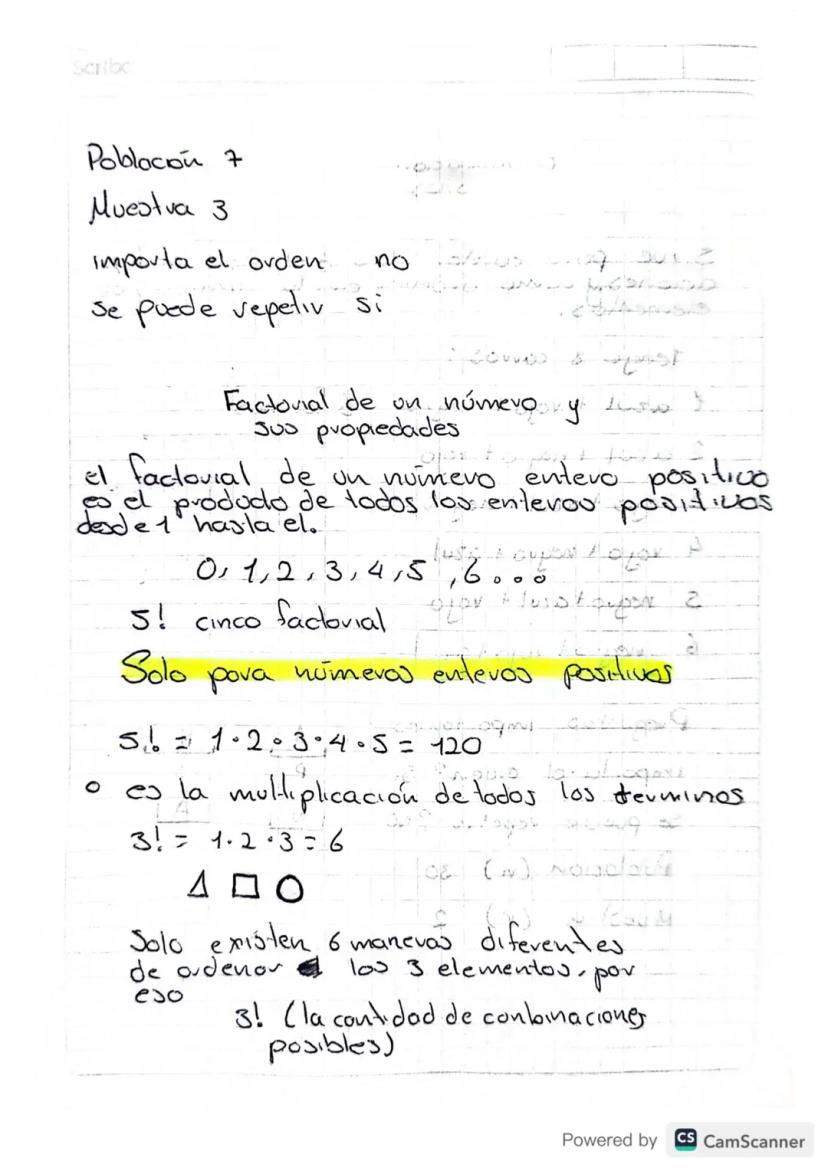 Scribe
Población 7
Muestra 3
importa el orden no
se puede repetir si
Factorial de un número y
sus propiedades
el factorial de un número entero positivo
es el producto de todos los enteros positivos
desde 1 hasta el.
0, 1, 2, 3, 4, 5, 6...
5! cinco factorial
Solo para números enteros positivos
5! = 1·2·3·4·5 = 120
o es la multiplicación de todos los terminos
3! = 1·2·3 = 6
△ □ ○
Solo existen 6 maneras diferentes
de ordenar los 3 elementos, por
eso
3! (la cantidad de conbinaciones
posibles)
Powered by CS CamScanner